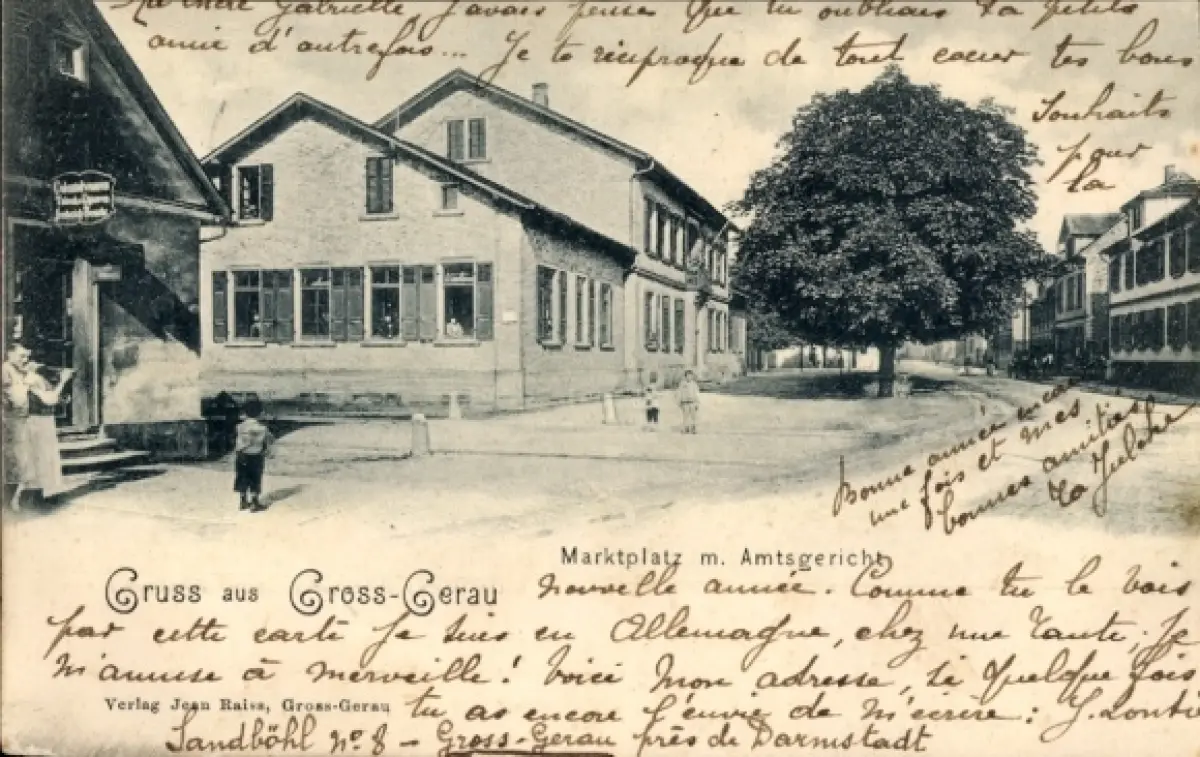 Ma chère Gabrielle j'avais pensé que tu oubliais ta petite
amie d'autrefois... Je te réciproque de tout coeur tes bons
souhaits
pour
la
Bonne année encore
une fois et mes
bonnes amitiés
Ta
Marktplatz m. Amtsgericht
Gruss aus Gross-Gerau
nouvelle année. Comme tu le vois
par cette carte je suis en Allemagne, chez une tante; je
m'amuse à merveille! Voici mon adresse, si quelque fois
Verlag Jean Raiss, Gross-Gerau
tu as encore l'envie de m'écrire:
Sandböhl no. 8 - Gross-Gerau près de Darmstadt